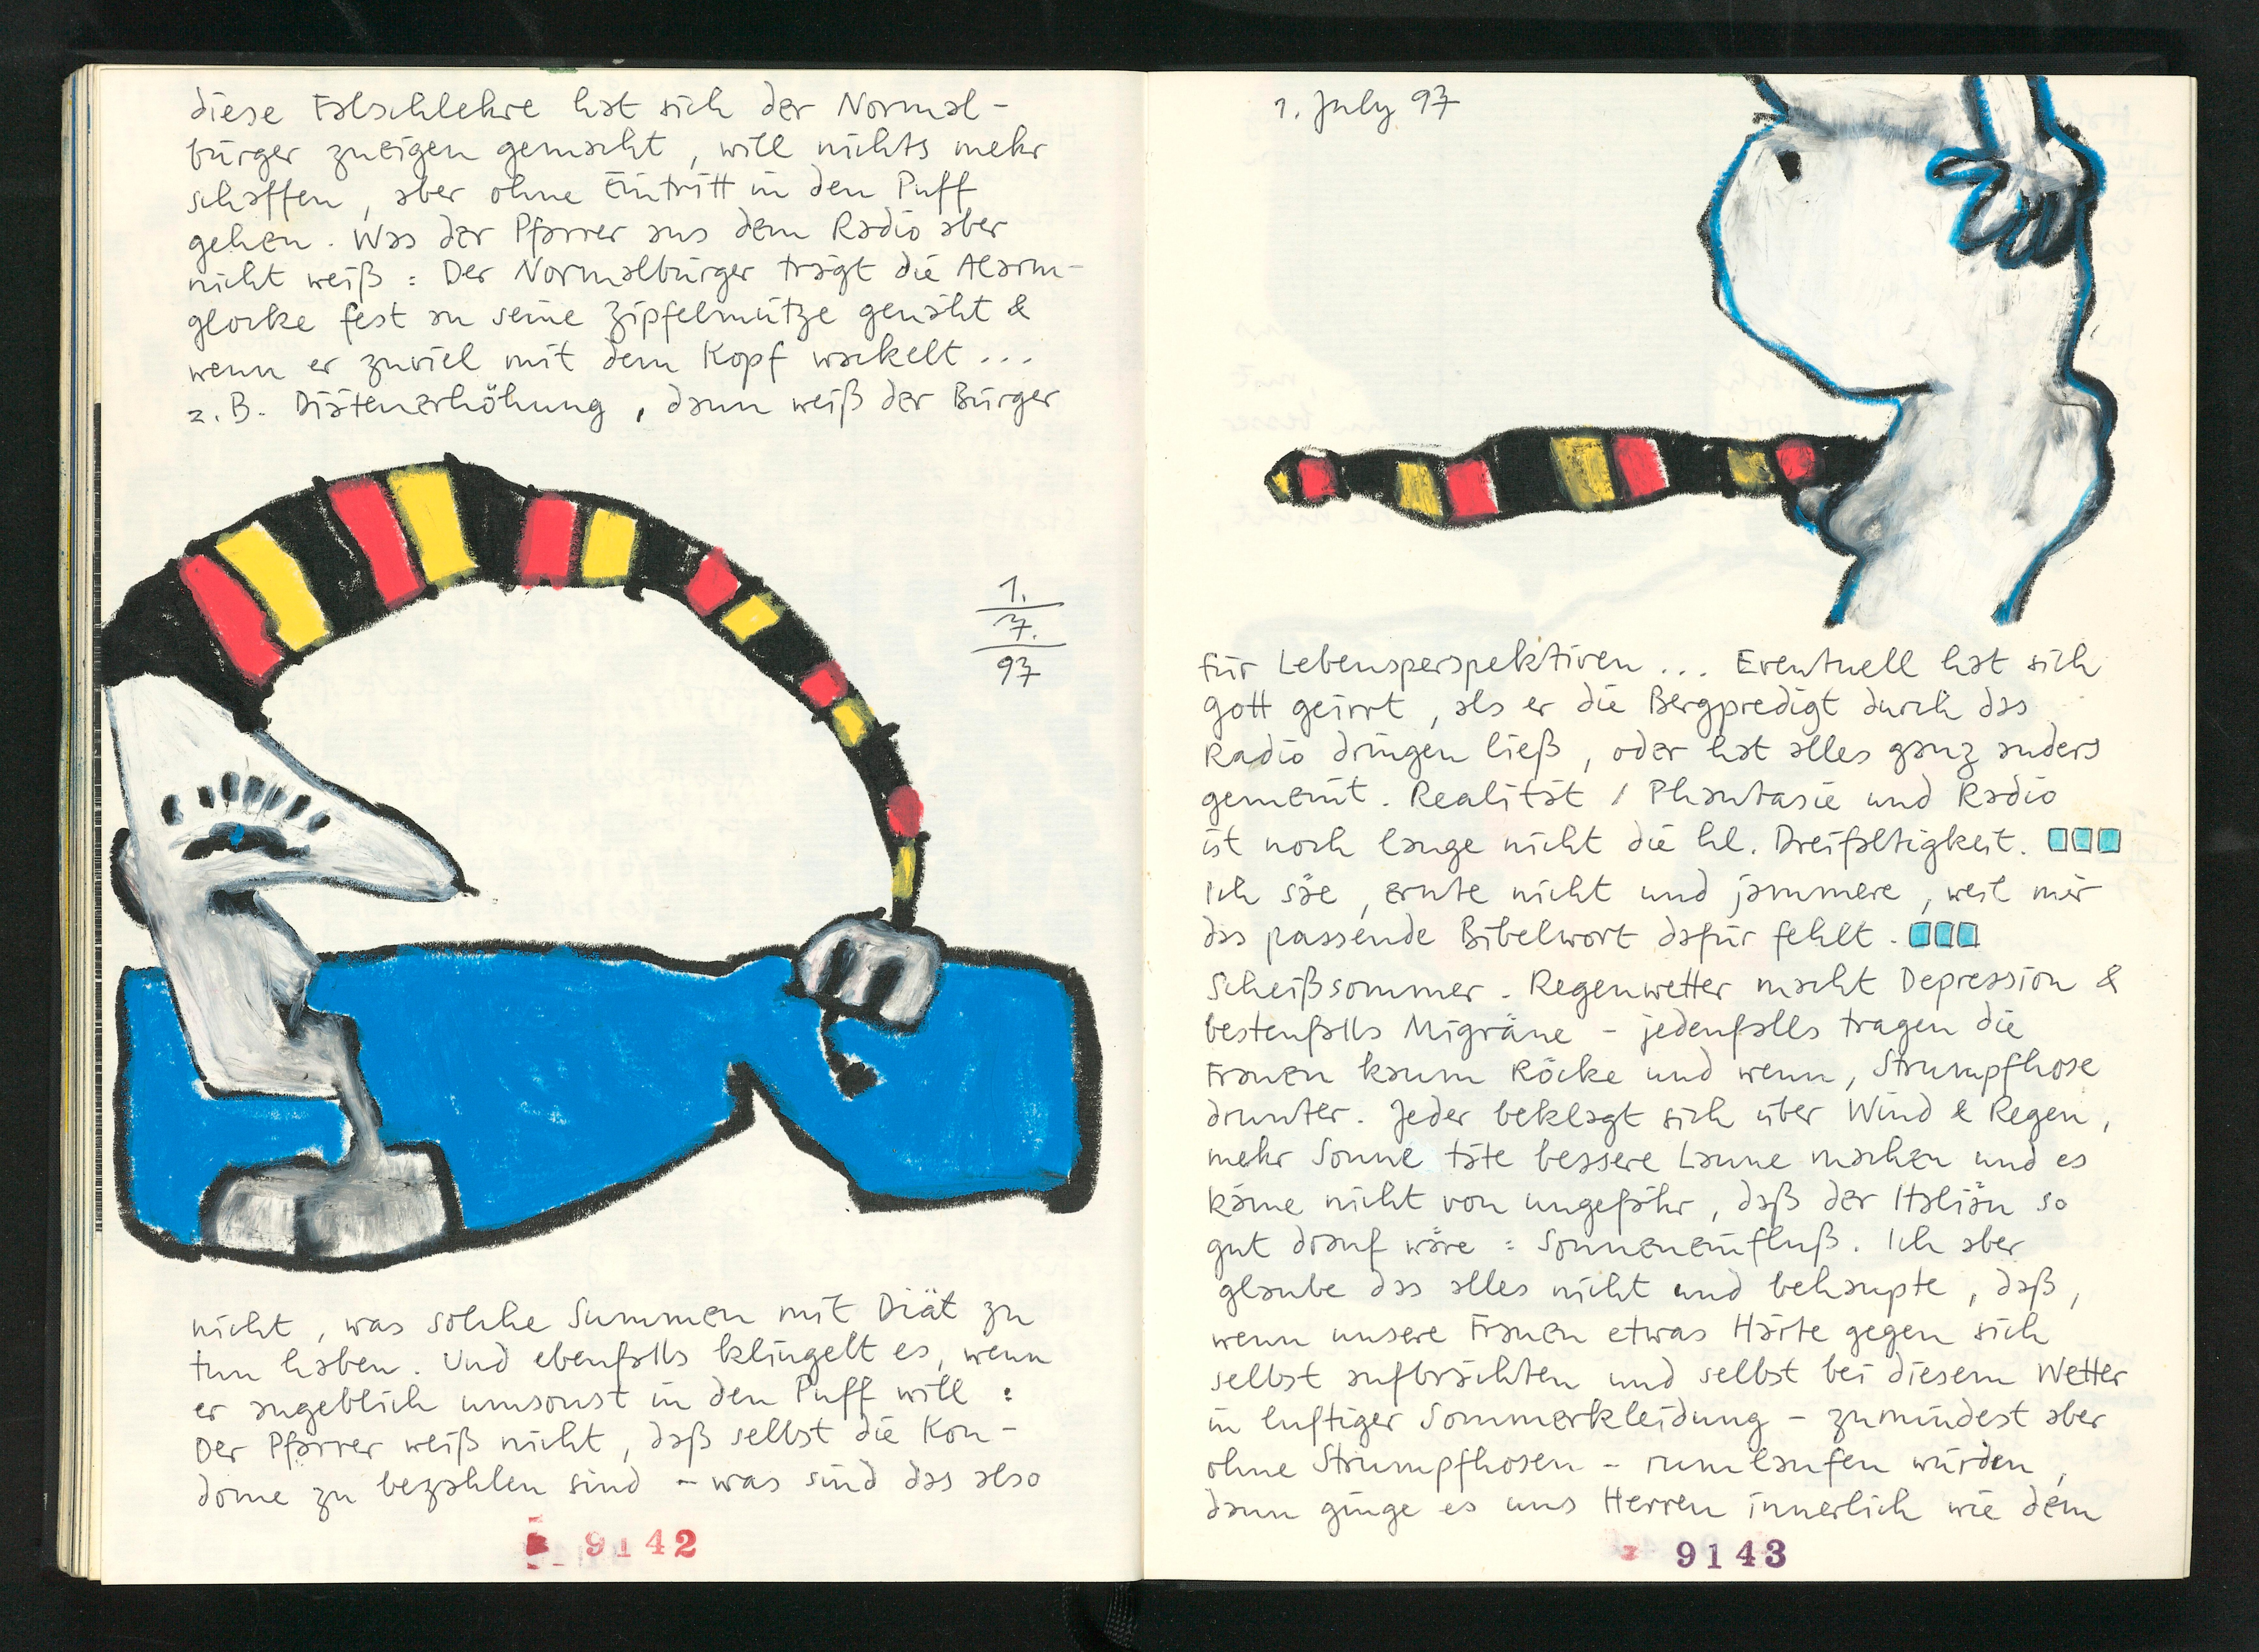 diese Falschlehre hat sich der Normal-
bürger zueigen gemacht, will nichts mehr
schaffen, aber ohne Eintritt in den Puff
gehen. Was der Pfarrer aus dem Radio aber
nicht weiß: Der Normalbürger trägt die Alarm-
glocke fest an seine Zipfelmütze genäht &
wenn er zuviel mit dem Kopf wackelt...
z.B. Diätenerhöhung, dann weiß der Bürger
1.
7.
97
nicht, was solche Summen mit Diät zu
tun haben. Und ebenfalls klingelt es, wenn
er angeblich umsonst in den Puff will:
Der Pfarrer weiß nicht, daß selbst die Kon-
dome zu bezahlen sind - was sind das also
9142
1. July 97
für Lebensperspektiven... Eventuell hat sich
Gott geirrt, als er die Bergpredigt durch das
Radio dringen ließ, oder hat alles ganz anders
gemeint. Realität / Phantasie und Radio
ist noch lange nicht die hl. Dreifaltigkeit.
Ich säe, ernte nicht und jammere, weil mir
das passende Bibelwort dafür fehlt.
Scheißsommer. Regenwetter macht Depression &
bestenfalls Migräne - jedenfalls tragen die
Frauen kaum Röcke und wenn, Strumpfhose
drunter. Jeder beklagt sich über Wind & Regen,
mehr Sonne täte bessere Laune machen und es
käme nicht von ungefähr, daß der Italiän so
gut drauf wäre: Sonneneinfluß. Ich aber
glaube das alles nicht und behaupte, daß,
wenn unsere Frauen etwas Härte gegen sich
selbst aufbrächten und selbst bei diesem Wetter
in luftiger Sommerkleidung - zumindest aber
ohne Strumpfhosen - rumlaufen würden,
dann ginge es uns Herren innerlich wie dem
9143